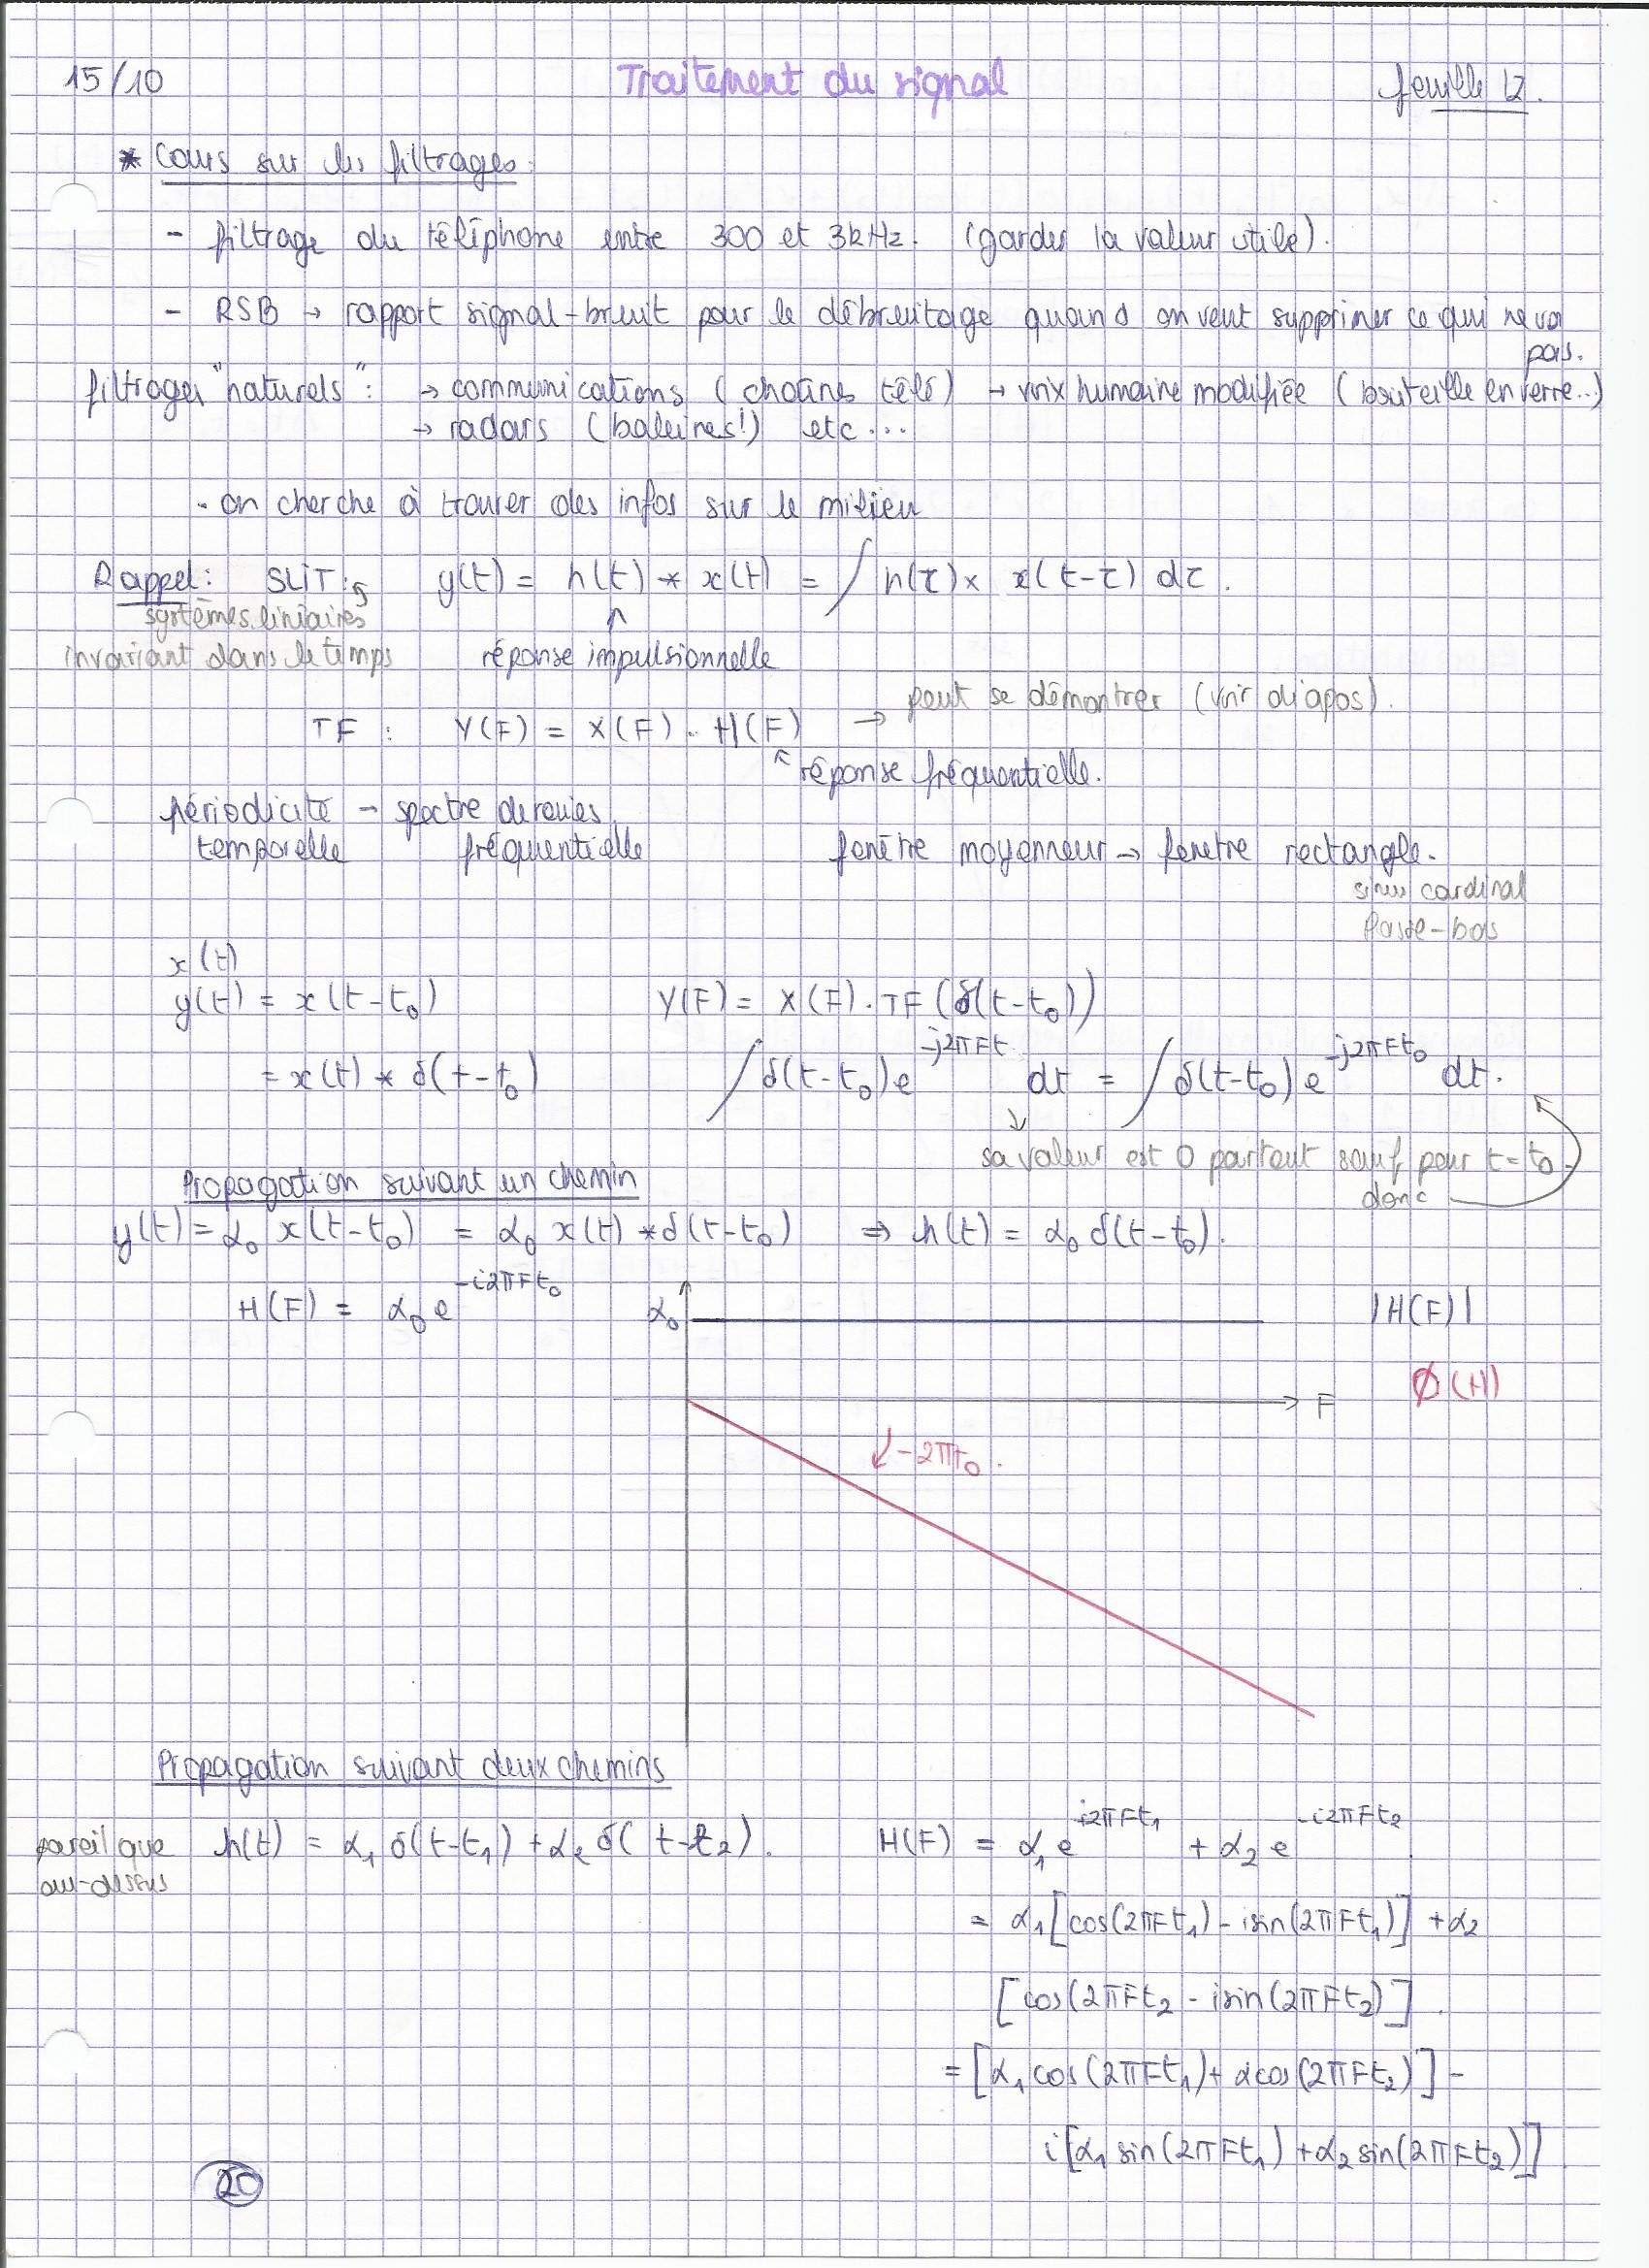 15/10 Traitement du signal feuille 12.
* Cours sur les filtrages:
- filtrage du téléphone entre 300 et 3kHz. (garder la valeur utile).
- RSB → rapport signal-bruit pour le débruitage quand on veut supprimer ce qui ne va
pas.
filtrages "naturels": → communications (chaînes télé) → voix humaine modifiée (bouteille en verre...)
→ radars (baleines!) etc...
- on cherche à trouver des infos sur le milieu
Rappel: SLIT: y(t) = h(t) * x(t) = ∫ h(τ) × x(t-τ) dτ.
systèmes linéaires
invariant dans le temps réponse impulsionnelle
TF : Y(F) = X(F) . H(F) → peut se démontrer (voir diapos).
réponse fréquentielle.
périodicité → spectre de raies
temporelle fréquentielle fenêtre moyenneur → fenetre rectangle.
sinus cardinal
Passe-bas
x(t)
y(t) = x(t-t₀) Y(F) = X(F) . TF(δ(t-t₀))
= x(t) * δ(t-t₀) ∫ δ(t-t₀) e^{-j2πFt} dt = ∫ δ(t-t₀) e^{-j2πFt₀} dt.
sa valeur est 0 partout sauf pour t=t₀
donc
Propagation suivant un chemin
y(t) = α₀ x(t-t₀) = α₀ x(t) * δ(t-t₀) ⇒ h(t) = α₀ δ(t-t₀).
H(F) = α₀ e^{-i2πFt₀} α₀ |H(F)|
F Ø(H)
-2πt₀.
Propagation suivant deux chemins
pareil que h(t) = α₁ δ(t-t₁) + α₂ δ(t-t₂). H(F) = α₁ e^{-i2πFt₁} + α₂ e^{-i2πFt₂}
au-dessus
= α₁[cos(2πFt₁) - isin(2πFt₁)] + α₂
[cos(2πFt₂ - isin(2πFt₂)].
= [α₁ cos(2πFt₁) + αcos(2πFt₂)] -
i[α₁ sin(2πFt₁) + α₂ sin(2πFt₂)]
20